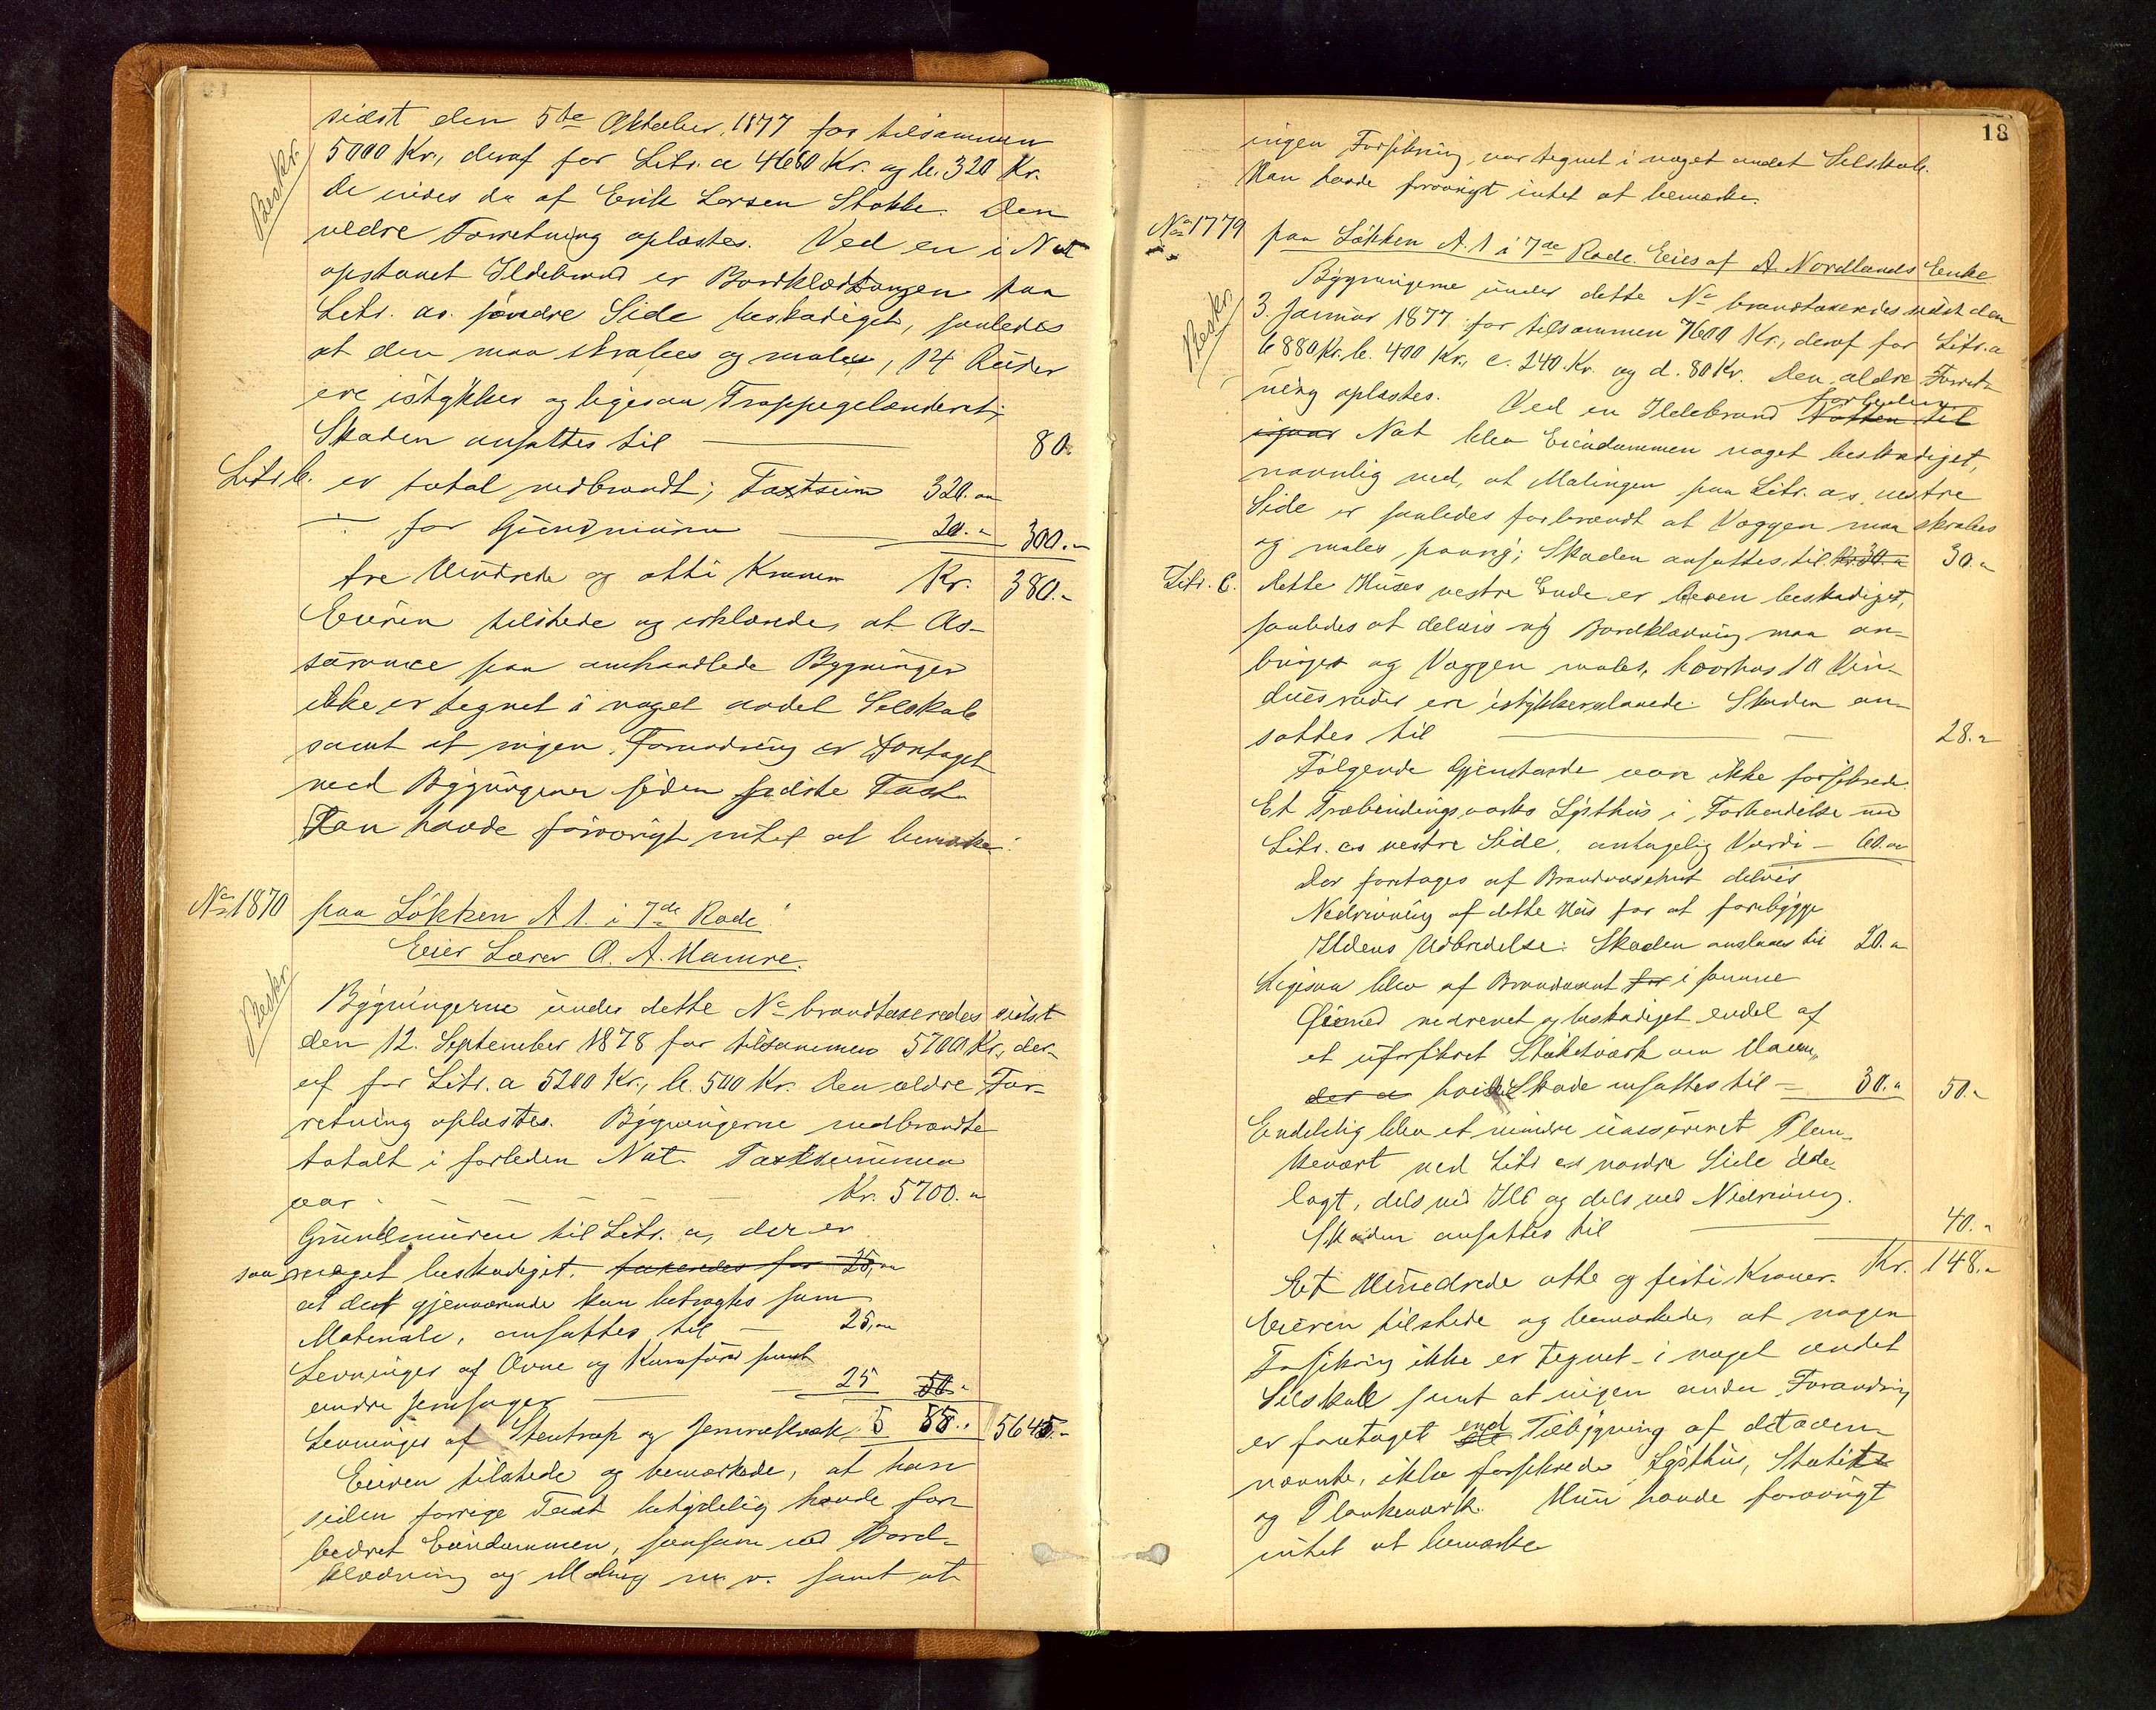 sidst den 5te Oktober 1877 for tilsammen
Beskr. 5000 Kr., deraf for Litr. a 4680 Kr. og b. 320 Kr.
De eiedes da af Erik Larsen Stokke. Den
ældre Forretning oplæstes. Ved en i Nat
opstaaet Ildebrand er Bordklædningen paa
Litr. as. søndre Side beskadiget, saaledes
at den maa skrabes og males, 14 Ruder
ere istykker og ligesaa Trappegelænderet;
Skaden ansattes til 80.
Litr. b. er total nedbrændt; Taxtsum 320.„
÷ for Grundmuren 20.„ 300.„
tre Hundrede og otti Kroner Kr. 380.„
Eieren tilstede og erklærede, at As-
surance paa omhandlede Bygninger
ikke er tegnet i noget andet Selskab
samt at ingen Forandring er foretaget
med Bygningerne siden sidste Taxt.
Han havde forøvrigt intet at bemærke.
No 1870 paa Løkken A 1. i 7de Rode
Eier Lærer O. A. Hamre.
Beskr. Bygningerne under dette No brandtaxeredes sidst
den 12. September 1878 for tilsammen 5700 Kr., der-
af for Litr. a 5200 Kr., b. 500 Kr. Den ældre For-
retning oplæstes. Bygningerne nedbrændte
totalt i forleden Nat. Taxtsummen
var Kr. 5700.„
Grundmuren til Litr. a, der er
saa meget beskadiget, taxeredes for 25,„
at det gjenværende kun betragtes som
Materiale, ansattes til 25,„
Levninger af Ovne og Komfur samt
andre Jernsager 25 50.„
Levninger af Stentrap og Jernrækværk 5 55.„ 5645.„
Eieren tilstede og bemærkede, at han
siden forrige Taxt betydelig havde for-
bedret Eiendommen, saasom med Bord-
klædning og Maling m. v. samt at
18
ingen Forsikring var tegnet i noget andet Selskab.
Han havde forøvrigt intet at bemærke.
No 1779 paa Løkken A. 1 i 7de Rode. Eies af A. Nordlunds Enke
Bygningerne under dette No brandtaxeredes sidst den
Beskr. 3. Januar 1877 for tilsammen 7600 Kr., deraf for Litr. a
6880 Kr. b. 400 Kr., c. 240 Kr. og d. 80 Kr. Den ældre Forret-
ning oplæstes. Ved en Ildebrand Natten til forleden
igaar Nat blev Eiendommen noget beskadiget,
navnlig ved, at Malingen paa Litr. a.s vestre
Side er saaledes forbrændt at Væggen maa skrabes
og males paany; Skaden ansattes til Kr. 30.„ 30.„
Litr. C. dette Huses vestre Ende er bleven beskadiget,
saaledes at delvis ny Bordklædning maa an-
bringes og Væggen males, hvorhos 10 Vin-
duesruder ere istykkerslaaede. Skaden an-
sattes til 28.„
Følgende Gjenstande vare ikke forsikrede.
Et Træbindingsværks Lysthus i Forbindelse med
Litr. as vestre Side, antagelig Værdi – 60.„
Der foretoges af Brandvæsenet delvis
Nedrivning af dette Hus for at forebygge
Ildens Udbredelse. Skaden ansloges til 20.„
Ligesaa blev af Brandvæsenet for i samme
Øiemed nedrevet og beskadiget endel af
et uforsikret Stakitværk om Haven,
der a hvilken Skade ansattes til – 30.„ 50.„
Endelig blev et mindre uassureret Plan-
keværk ved Litr as nordre Side øde-
lagt, dels ved Ild og dels ved Nedrivning.
Skaden ansattes til 40.„
Et Hundrede otte og firti Kroner. Kr. 148.„
Eieren tilstede og bemærkede, at nogen
Forsikring ikke er tegnet i noget andet
Selskab samt at ingen anden Forandring
er foretaget end Tilbygning af det oven-
nævnte, ikke forsikrede Lysthus, Stakit
og Plankeværk. Hun havde forøvrigt
intet at bemærke